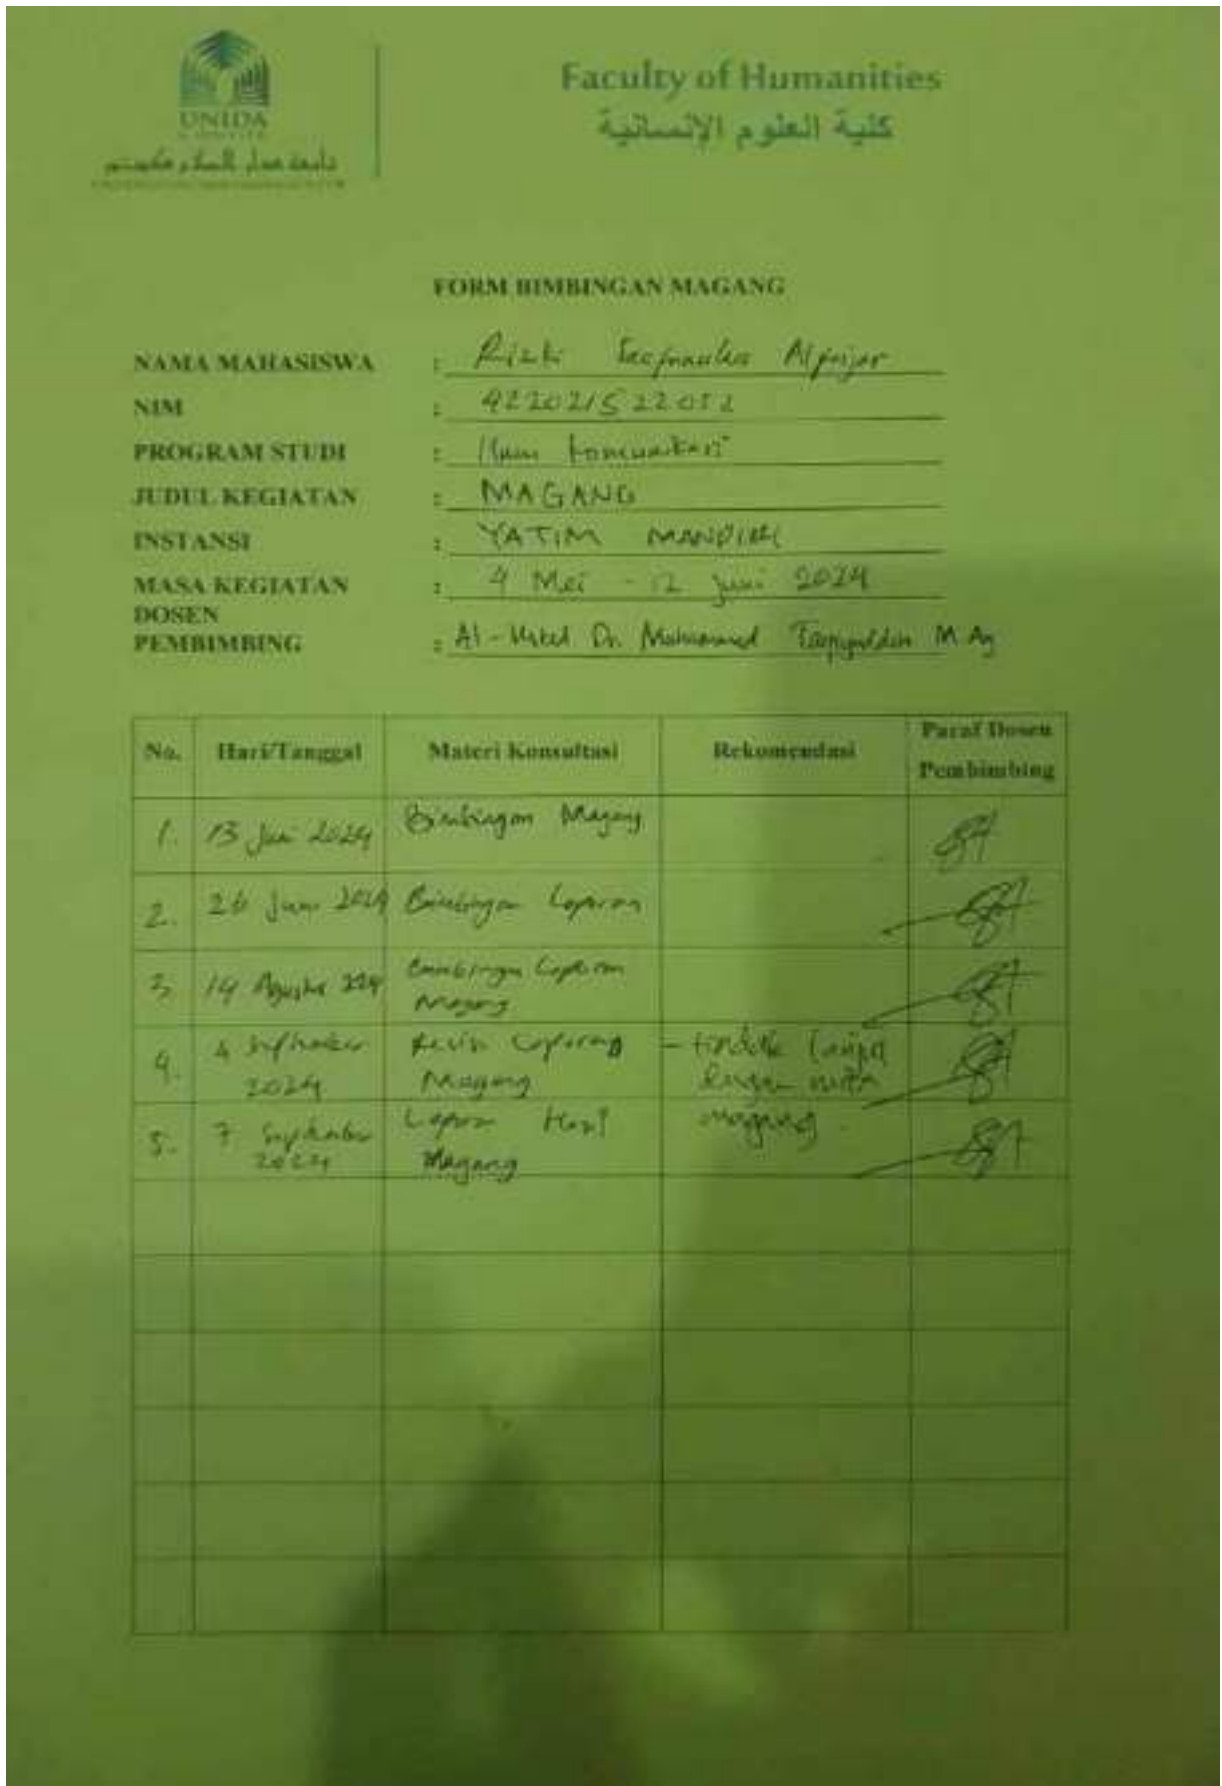 UNIDA
Faculty of Humanities
كلية العلوم الإنسانية
FORM BIMBINGAN MAGANG
NAMA MAHASISWA : Rizki
NIM :
PROGRAM STUDI : Ilmu komunikasi
JUDUL KEGIATAN : MAGANG
INSTANSI : YATIM MANDIRI
MASA KEGIATAN : 4 Mei - 12 Juni 2024
DOSEN
PEMBIMBING : Al-Ustad Dr. Muhammad M Ag
No. Hari/Tanggal Materi Konsultasi Rekomendasi Paraf Dosen Pembimbing
1. 13 Juni 2024 Bimbingan Magang
2. 26 Juni 2024 Bimbingan Laporan
3. 14 Agustus 2024 Bimbingan Laporan Magang
4. 4 September 2024 Revisi Laporan Magang - tindak lanjut dengan mitra magang.
5. 7 September 2024 Laporan Hasil Magang